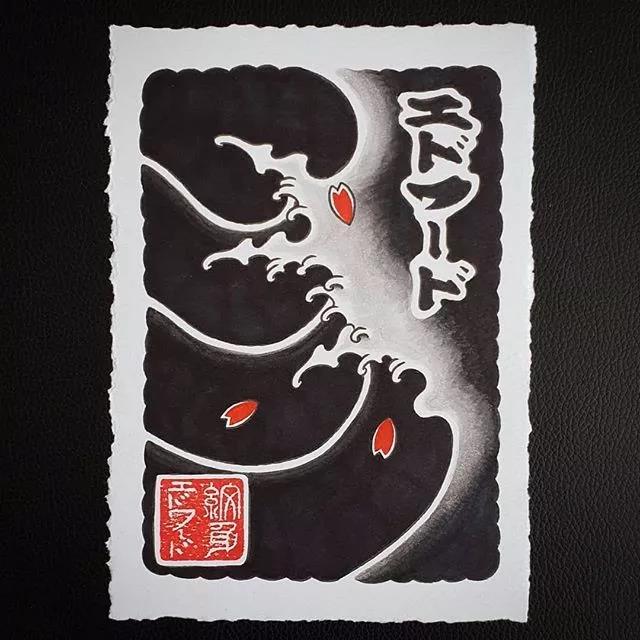 エドワード
紋身
エドワード